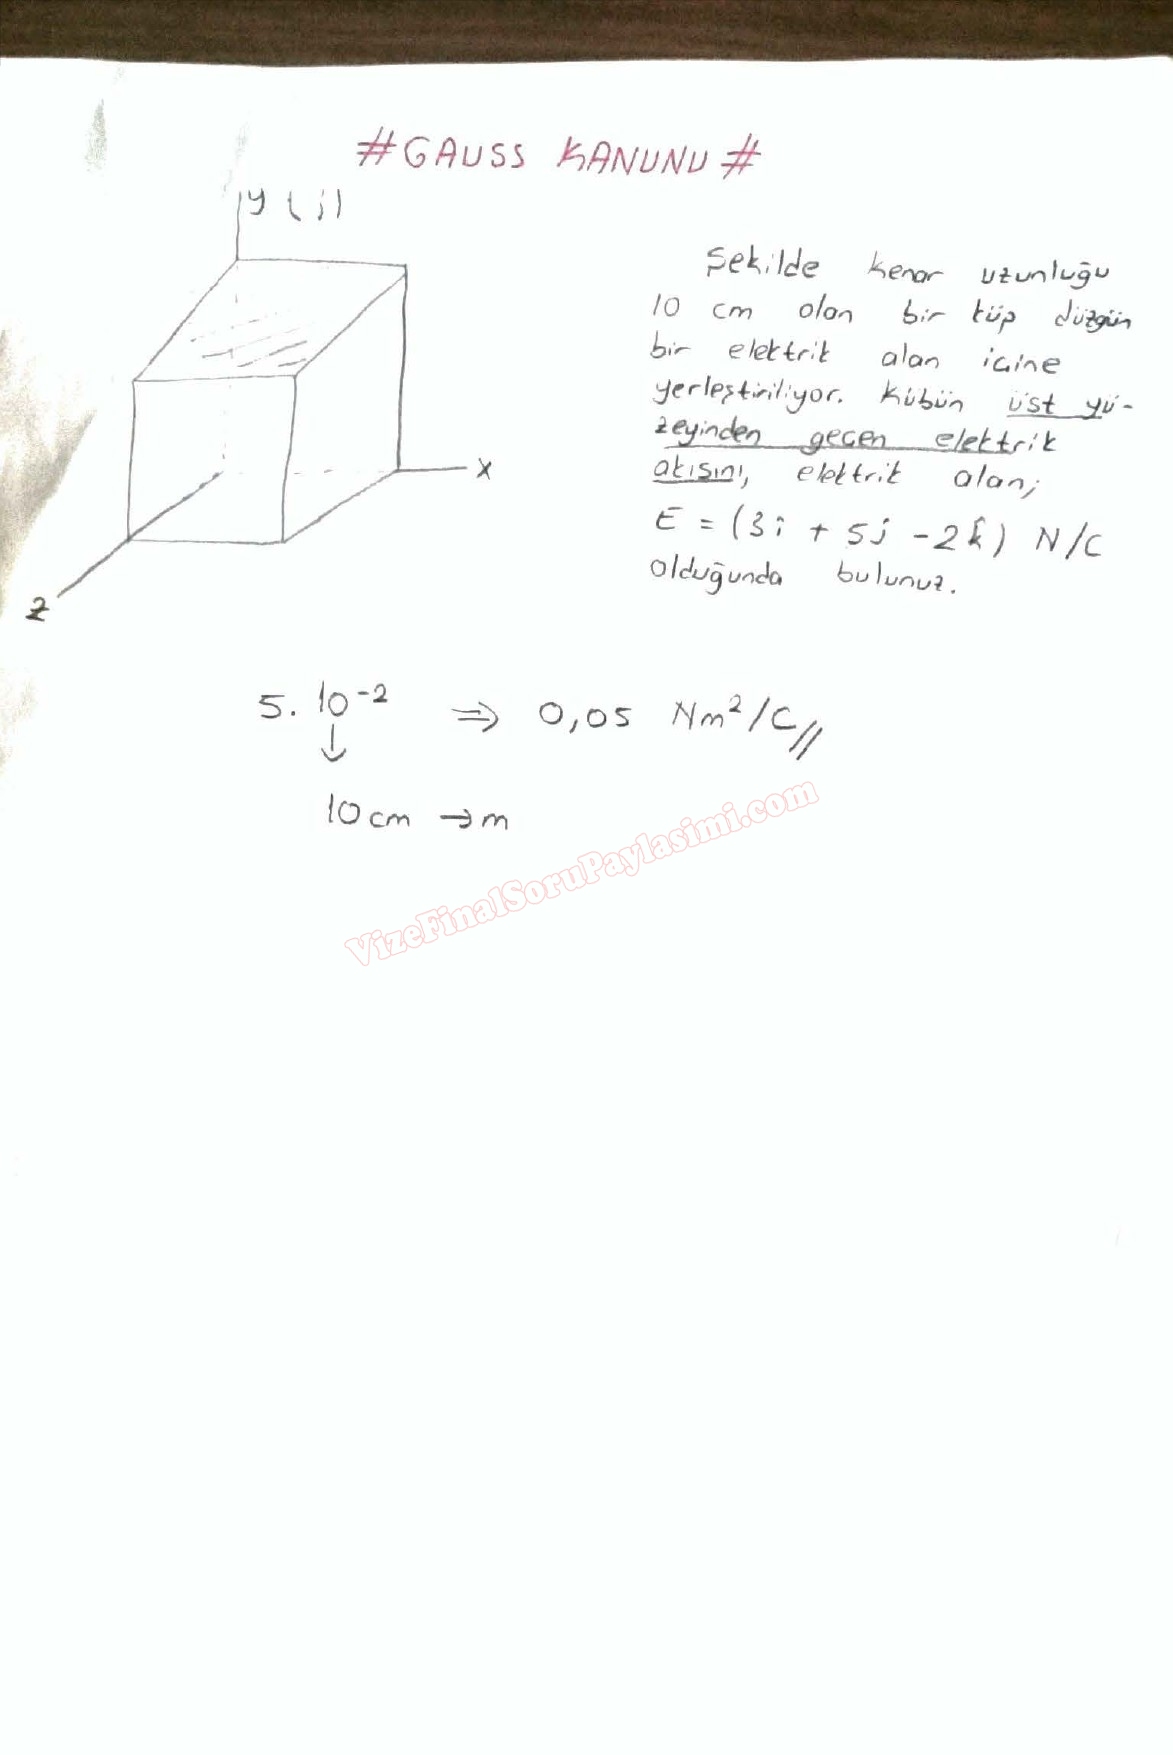 #GAUSS KANUNU#
y (j)
Şekilde kenar uzunluğu
10 cm olan bir küp düzgün
bir elektrik alan içine
yerleştiriliyor. Kübün üst yü-
zeyinden geçen elektrik
akısını, elektrik alan;
E = (3i + 5j - 2k) N/C
olduğunda bulunuz.
x
z
5. 10⁻² ⇒ 0,05 Nm²/C//
↓
10cm → m
VizeFinalSoruPaylasimi.com